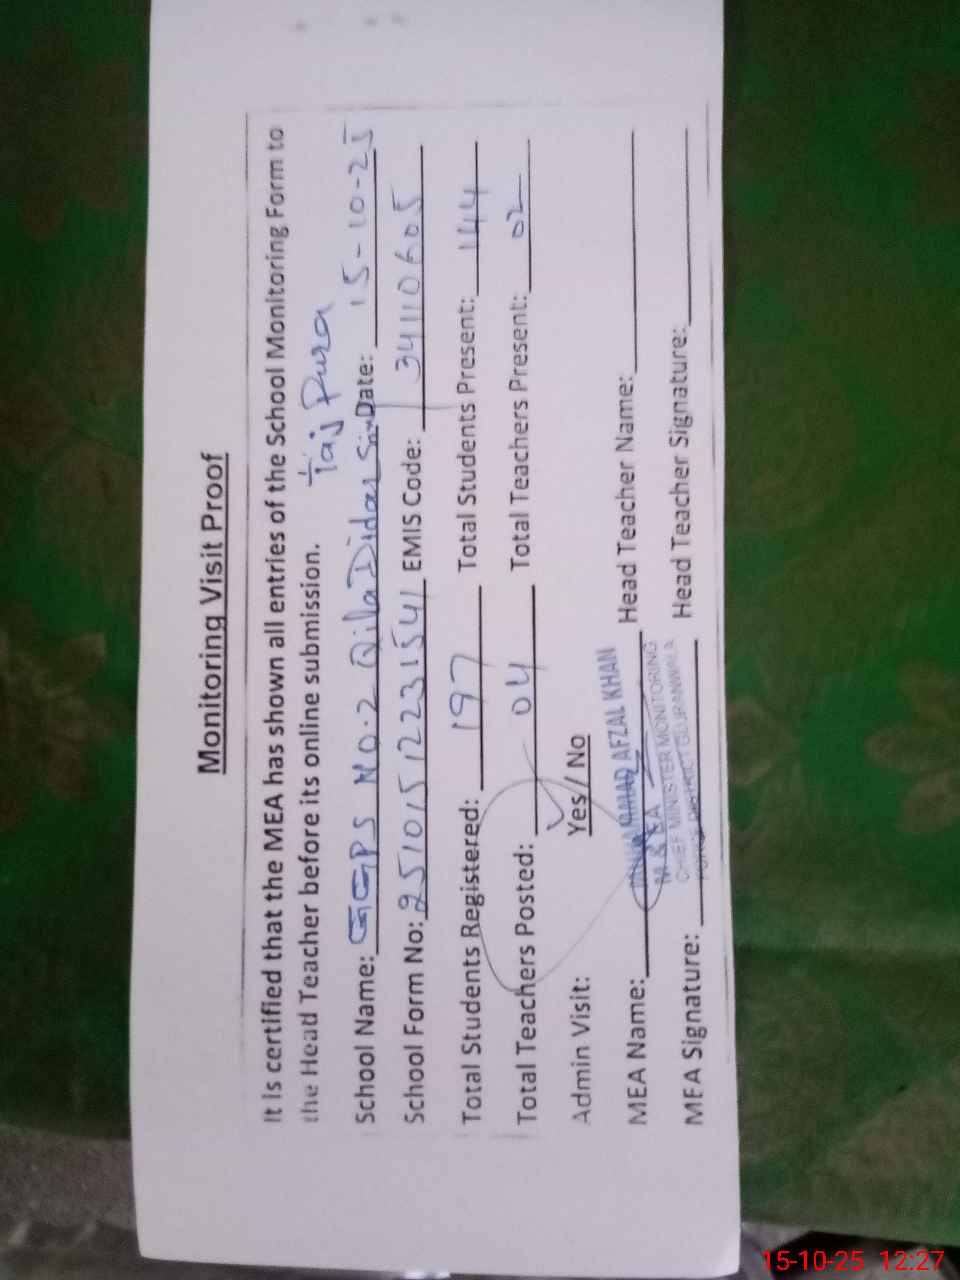 Monitoring Visit Proof
It is certified that the MEA has shown all entries of the School Monitoring Form to
the Head Teacher before its online submission.
Taj Pura
School Name: GGPS NO.2 Qila Didar Sin Date: 15-10-25
School Form No: 25101512231541 EMIS Code: 34110605
Total Students Registered: 197 Total Students Present: 144
Total Teachers Posted: 04 Total Teachers Present: 02
Admin Visit: Yes/ No
MEA Name: MUHAMMAD AFZAL KHAN Head Teacher Name:
M & EA
CHIEF MINISTER MONITORING
FORCE DISTRICT GUJRANWALA
MEA Signature: Head Teacher Signature:
15-10-25 12:27